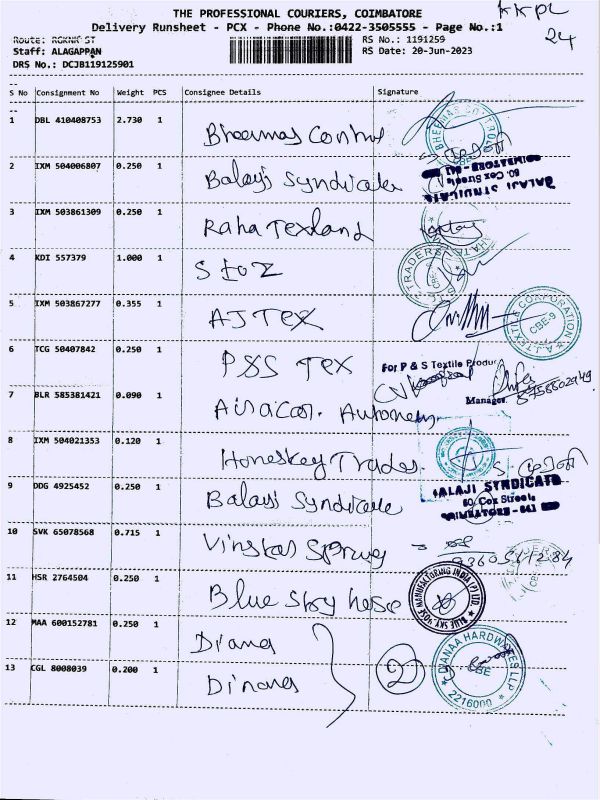 THE PROFESSIONAL COURIERS, COIMBATORE
KKPL
24
Delivery Runsheet - PCX - Phone No.:0422-3505555 - Page No.:1
Route: RGKNR ST
RS No.: 1191259
Staff: ALAGAPPAN
RS Date: 20-Jun-2023
DRS No.: DCJB119125901
S No Consignment No Weight PCS Consignee Details Signature
1 DBL 410408753 2.730 1 Bheemas Control
2 IXM 504006807 0.250 1 Balaji Syndicate
BALAJI SYNDICATE
60, Cox Street,
COIMBATORE - 641
3 IXM 503861309 0.250 1 Raha Texland
4 KDI 557379 1.000 1 S to Z
TRADERS
5 IXM 503867277 0.355 1 AJ TEX
A.J. TEXTILE CORPORATION
CBE-9
6 TCG 50407842 0.250 1 P&S Tex
For P & S Textile Produ
Manager.
8758802949
7 BLR 585381421 0.090 1
8 IXM 504021353 0.120 1 Honeskey Trades
9 DDG 4925452 0.250 1 Balaji Syndicate
BALAJI SYNDICATE
60, Cox Street,
COIMBATORE - 641
10 SVK 65078568 0.715 1 Vinstar Spring
11 HSR 2764504 0.250 1 Blue Sky hose
BLUE SKY HOSE MANUFACTURING INDIA (P) LTD.
12 MAA 600152781 0.250 1 Diana
13 CGL 8008039 0.200 1 Dinana
2
DIANAA HARDWARES LLP
CBE
2216000